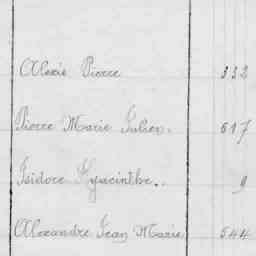 Alexis Pierre 332
Pierre Marie Julien. 617
Isidore Hyacinthe.. 9
Alexandre Jean Marie 544